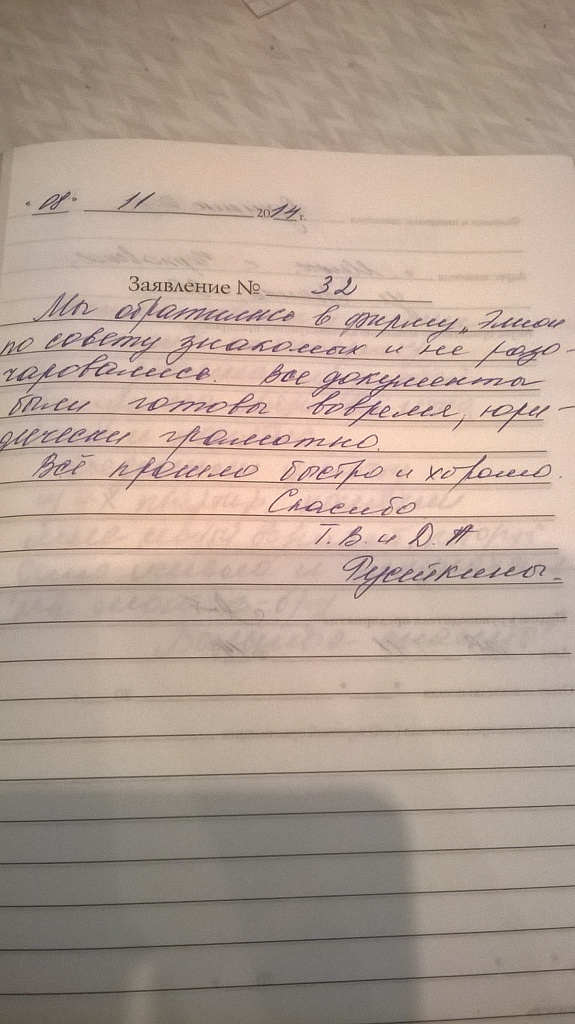 "08" 11 2014 г.
Заявление № 32
Мы обратились в фирму „Элиот
по совету знакомых и не разо-
чаровались. Все документы
были готовы вовремя, юри-
дически грамотно.
Всё прошло быстро и хорошо.
Спасибо
Т.В. и Д.А